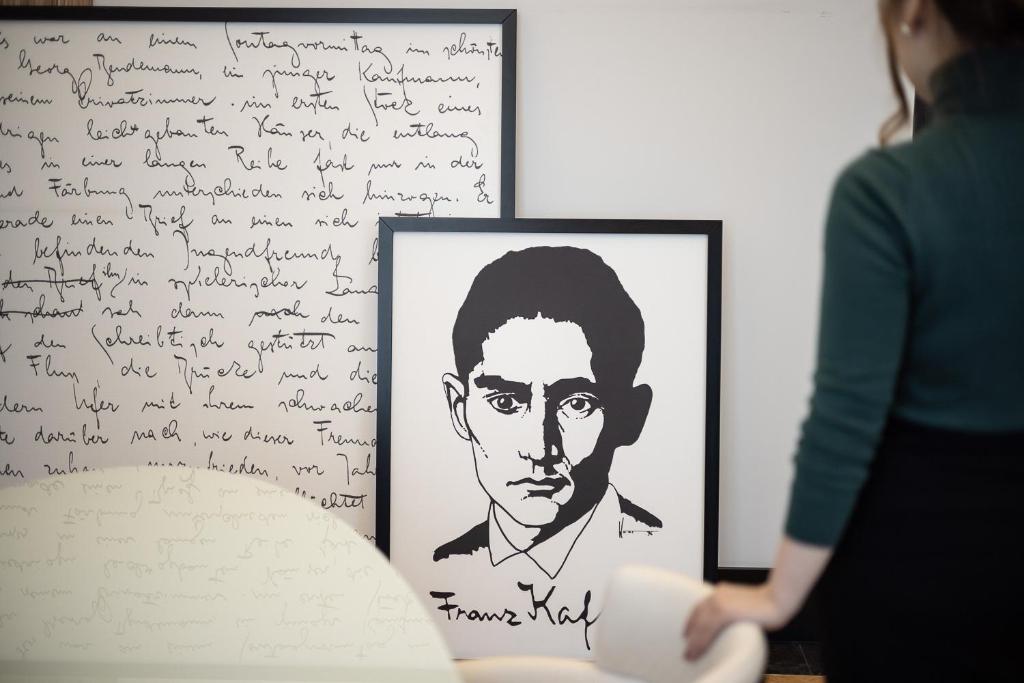 s war an einem Sonntagvormittag im schönsten
Georg Bendemann, ein junger Kaufmann,
seinem Privatzimmer im ersten Stock eines
drigen leichtgebauten Häuser, die entlang
s in einer langen Reihe fast nur in der
nd Färbung unterschieden sich hinzogen. Er
erade einen Brief an einen sich
befindenden Jugendfreund b
den Brief ihn in spielerischer Lang
schaut sah dann nach den
f den Schreibtisch gestützt au
Fluß, die Brücke und die
dern Ufer mit ihrem schwachen
te darüber nach, wie dieser Freund
en zuhau zufrieden, vor Jahr
flüchtet
Franz Kaf